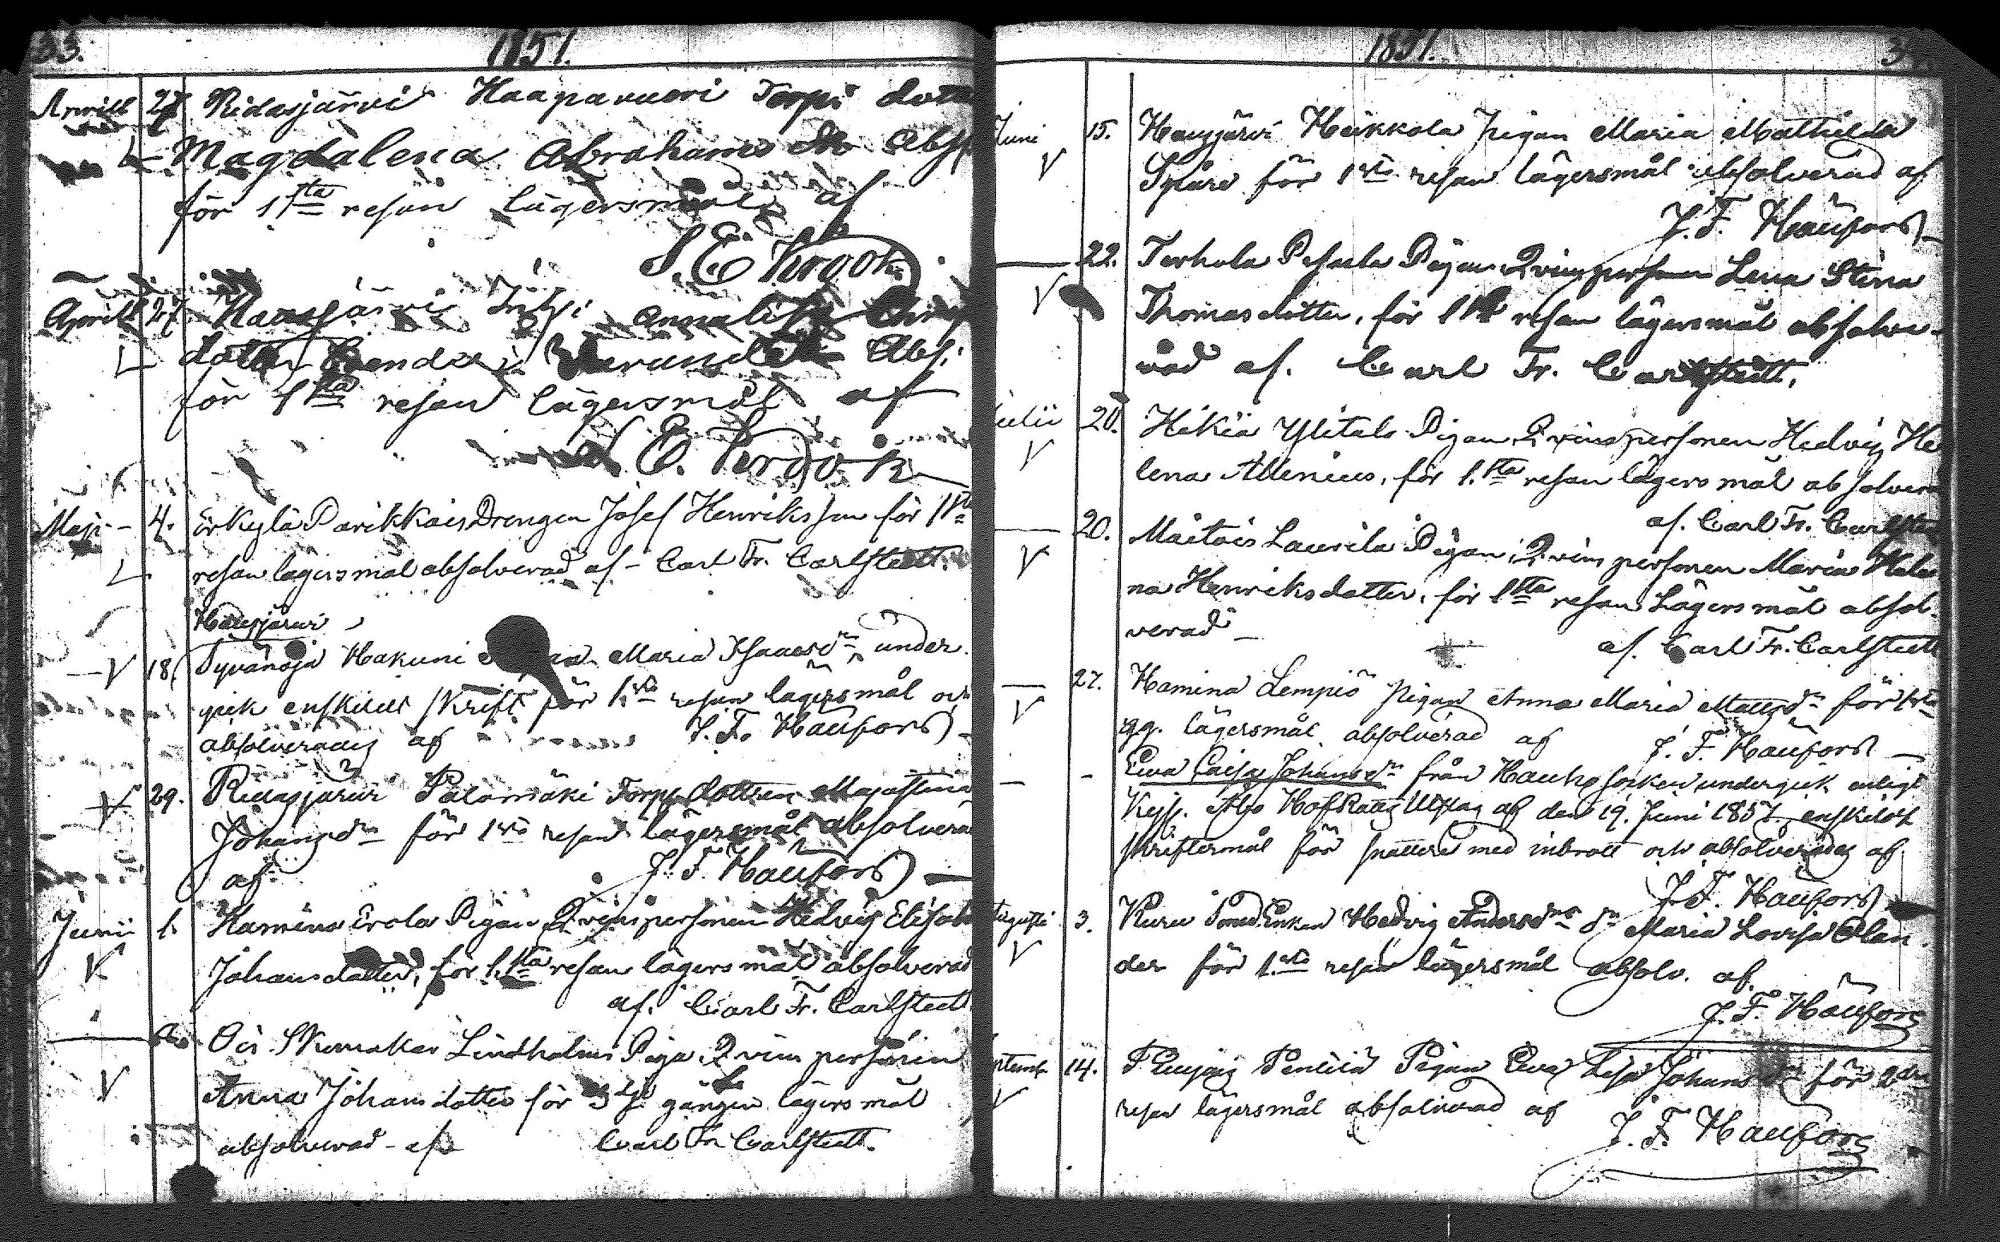 33.
1857.
Aprill 27 Ridasjärvi Haapavuori Torps dott
Magdalena Abrahams dr Abs
för 1sta resan lägersmål af
S. E. Krook
Aprill 27. Hausjärvi
dotter Abs:
för 1sta resan lägersmål af
S. E. Krook
Maji 4. örkylä Parikkais Drengen Josef Henriksson för 1sta
resan lägersmål absolverad af – Carl Fr. Carlstedt.
Hausjärvi
18 Tyvänoja Hakuni Maria Isaacsdr under-
gick enskildt skrift för 1sta resan lägersmål och
absolverades af J. F. Haufors
29. Ridasjärvi Palomäki Torpdottren Maja Stina
Johansdr för 1sta resan lägersmål absolvera
af J. F. Haufors
Junii 1. Hamina Erola Pigan Qvinspersonen Hedvig Elisab
Johansdotter, för 1sta resan lägersmål absolverad
af. Carl Fr. Carlstedt
Ois Skomakar Lindholms Piga Qvinspersonen
Anna Johansdotter för 3dje gången lägersmål
absolverad – af Carl Fr Carlstedt.
1857.
Juni 15. Hausjärvi Heikkola pigan Maria Mathilda
Spåre för 1sta resan lägersmål absolverad af
J. F. Haufors
22. Torhola Pigan Qvinspersonen Lena Stina
Thomasdotter, för 1sta resan lägersmål absolve-
rad af. Carl Fr. Carlstedt.
Julii 20. Hikiä Ylitalo Pigan Qvinspersonen Hedvig He
lena Allenius, för 1.sta resan lägersmål absolvera
af. Carl Fr. Carlsted
20. Maitois Laurila Pigan Qvinspersonen Maria Hele
na Henriksdotter, för 1sta resan Lägersmål absol-
verad –
af. Carl Fr. Carlstedt
27. Hamina Lempiö pigan Anna Maria Mattsdr för 1sta
gg. lägersmål absolverad af J. F. Haufors
Ewa Caisa Johansdr från Hauho socken undergick enligt
Kejs. Åbo HofRätts Utslag af den 19. Juni 1857 enskildt
skriftermål för snatteri med inbrott och absolverades af
J. F. Haufors
Augusti 3. Kuru Hedvig Andersdrs dr Maria Lovisa Olan-
der för 1.sta resan lägersmål absolv. af
J. F. Haufors
Septemb. 14. Pentilä Pigan Ewa Lisa Johansdr för 2dra
resan lägersmål absolverad af
J. F. Haufors